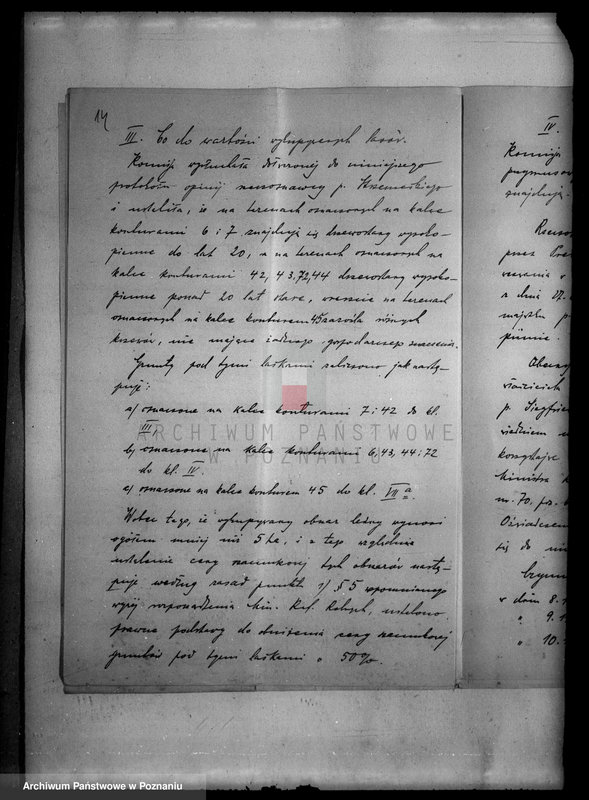 14
III. Co do wartości wykupywanych lasów.
Komisja wysłuchała dołączonej do niniejszego
protokółu opinji rzeczoznawcy p. Krzemieckiego
i ustaliła, że na terenach oznaczonych na kalce
konturami 6 i 7 znajdują się drzewostany wysoko-
pienne do lat 20, a na terenach oznaczonych na
kalce konturami 42, 43, 72, 44 drzewostany wysoko-
pienne ponad 20 lat stare, wreszcie na terenach
oznaczonych na kalce konturem 45 zarośla różnych
krzewów, nie mające żadnego gospodarczego znaczenia.
Grunty pod tymi laskami zaliczono jak nastę-
pują:
a) oznaczone na kalce konturami 7 i 42 do kl.
III,
b) oznaczone na kalce konturami 6, 43, 44 i 72
do kl. IV.
c) oznaczone na kalce konturem 45 do kl. VII a
Wobec tego, że wykupywany obszar leśny wynosi
ogółem mniej niż 5 ha, i z tego względu
ustalenie ceny szacunkowej tych obszarów nastę-
puje według zasad punktu 1) § 5 wspomnianego
wyżej rozporządzenia Min. Ref. Rolnych, ustalono
prawne podstawy do obniżenia ceny szacunkowej
gruntów pod tymi laskami o 50%.
IV.
Komisja
znajdują
przez
z dnia
majątku
p. Siegfrie
Ministra
nr. 70, poz.
Oświadczen
się do
w dniu 8.
" 9.
" 10.
ARCHIWUM PAŃSTWOWE
W POZNANIU
Archiwum Państwowe w Poznaniu